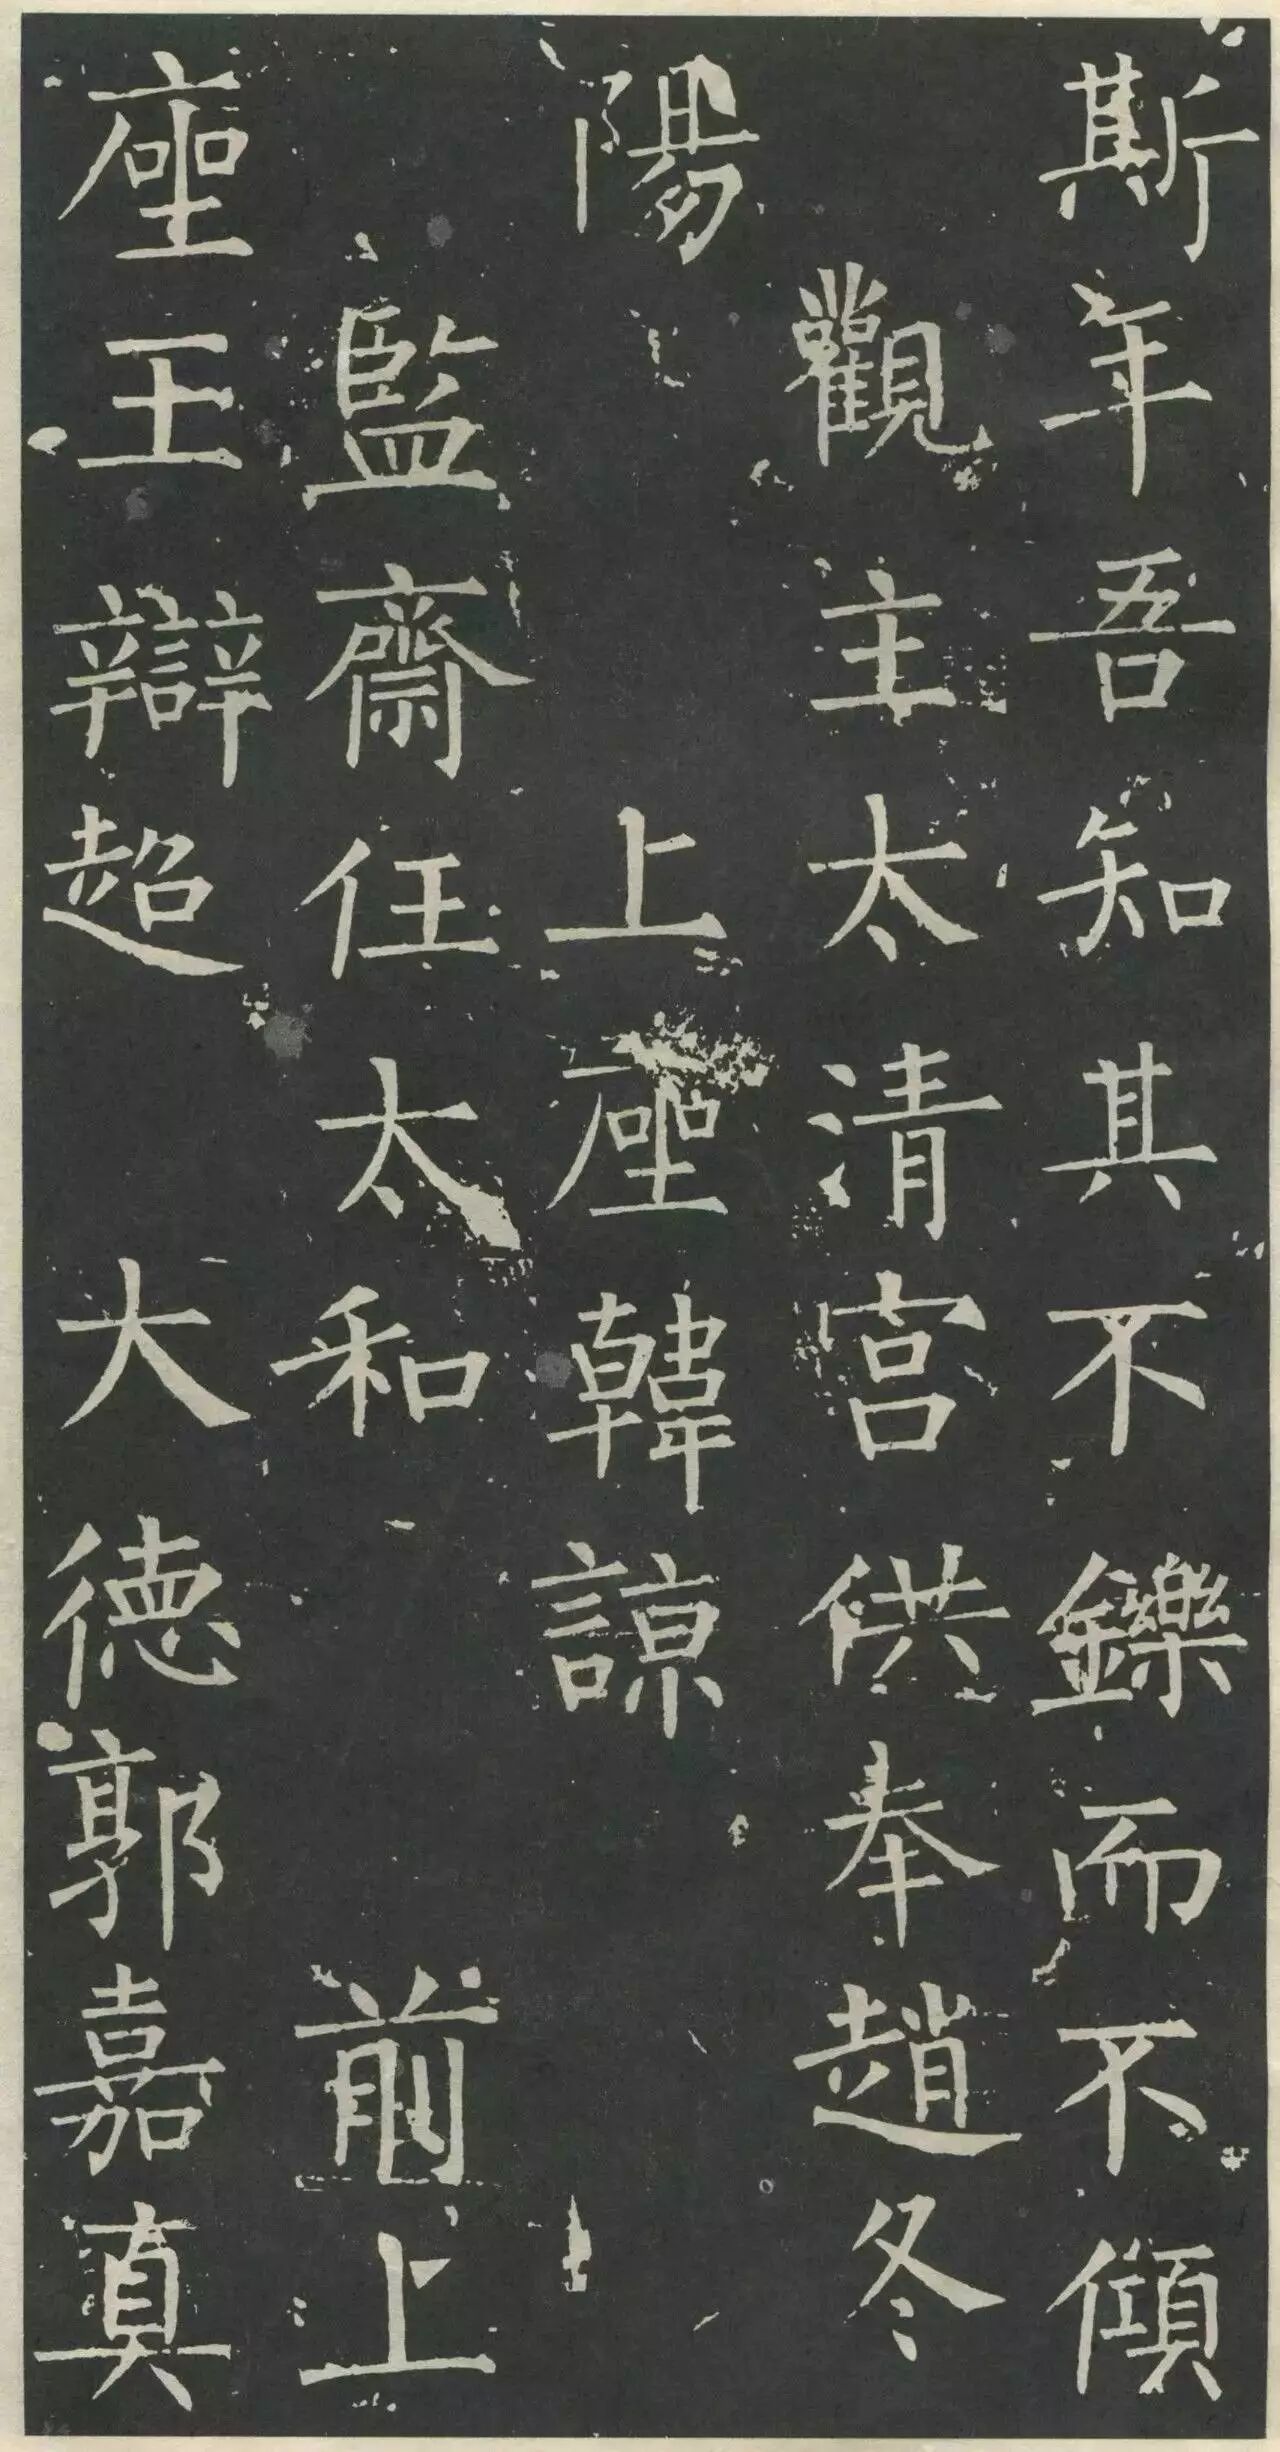 斯年吾知其不鑠而不傾
觀主太清宮供奉趙冬
陽　上座韓諒
監齋任太和　前上
座王辯超　大德郭嘉真